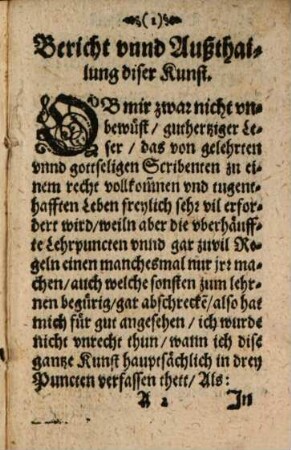 (1)
Bericht vnnd Außthai-
lung diser Kunst.
OB mir zwar nicht vn-
bewüst / guthertziger Le-
ser / das von gelehrten
vnnd gottseligen Scribenten zu ei-
nem recht vollkom̃nen vnd tugent-
hafften Leben freylich sehr vil erfor-
dert wird / weiln aber die vberhäuff-
te Lehrpuncten vnnd gar zuvil Re-
geln einen manchesmal nur jrz ma-
chen / auch welche sonsten zum lehr-
nen begürig / gar abschreckẽ / also hat
mich für gut angesehen / ich wurde
nicht vnrecht thun / wann ich dise
gantze Kunst hauptsächlich in drey
Puncten verfassen thett / Als:
A 2 In